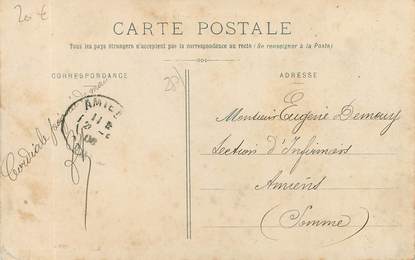 20 €
CARTE POSTALE
Tous les pays étrangers n'acceptent pas la correspondance au recto (Se renseigner à la Poste)
CORRESPONDANCE
ADRESSE
Cordiale
AMIENS
Monsieur Eugène
Section d'Infirmiers
Amiens
(Somme)